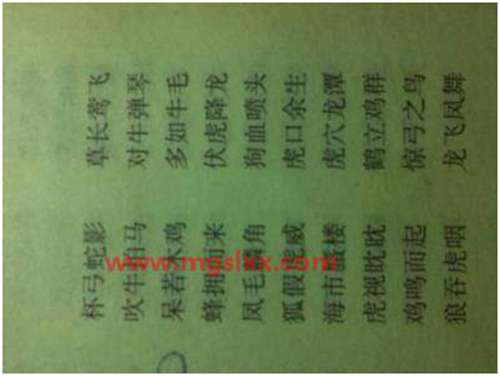 杯弓蛇影 草长莺飞
吹牛拍马 对牛弹琴
呆若木鸡 多如牛毛
蜂拥而来 伏虎降龙
凤毛麟角 狗血喷头
狐假虎威 虎口余生
海市蜃楼 虎穴龙潭
虎视眈眈 鹤立鸡群
鸡鸣而起 惊弓之鸟
狼吞虎咽 龙飞凤舞
www.mgslxx.com